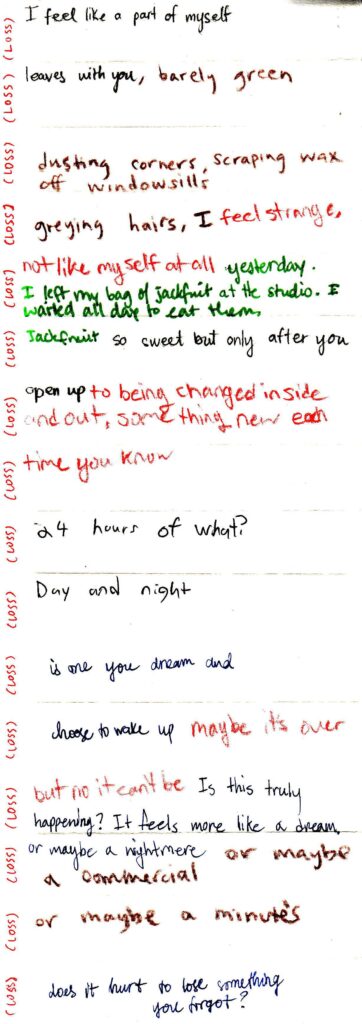 (LOSS) I feel like a part of myself
(LOSS)
(LOSS) leaves with you, barely green
(LOSS) dusting corners, scraping wax
off windowsills
(LOSS) greying hairs, I feel strange,
(LOSS) not like myself at all yesterday.
I left my bag of jackfruit at the studio. I
waited all day to eat them,
(LOSS) Jackfruit so sweet but only after you
(LOSS) open up to being changed inside
and out, something new each
(LOSS) time you know
(LOSS) 24 hours of what?
(LOSS) Day and night
(LOSS) is one you dream and
(LOSS) choose to wake up maybe it's over
(LOSS) but no it can't be Is this truly
happening? It feels more like a dream,
(LOSS) or maybe a nightmere or maybe
a commercial
(LOSS) or maybe a minute's
(LOSS) does it hurt to lose something
you forgot?